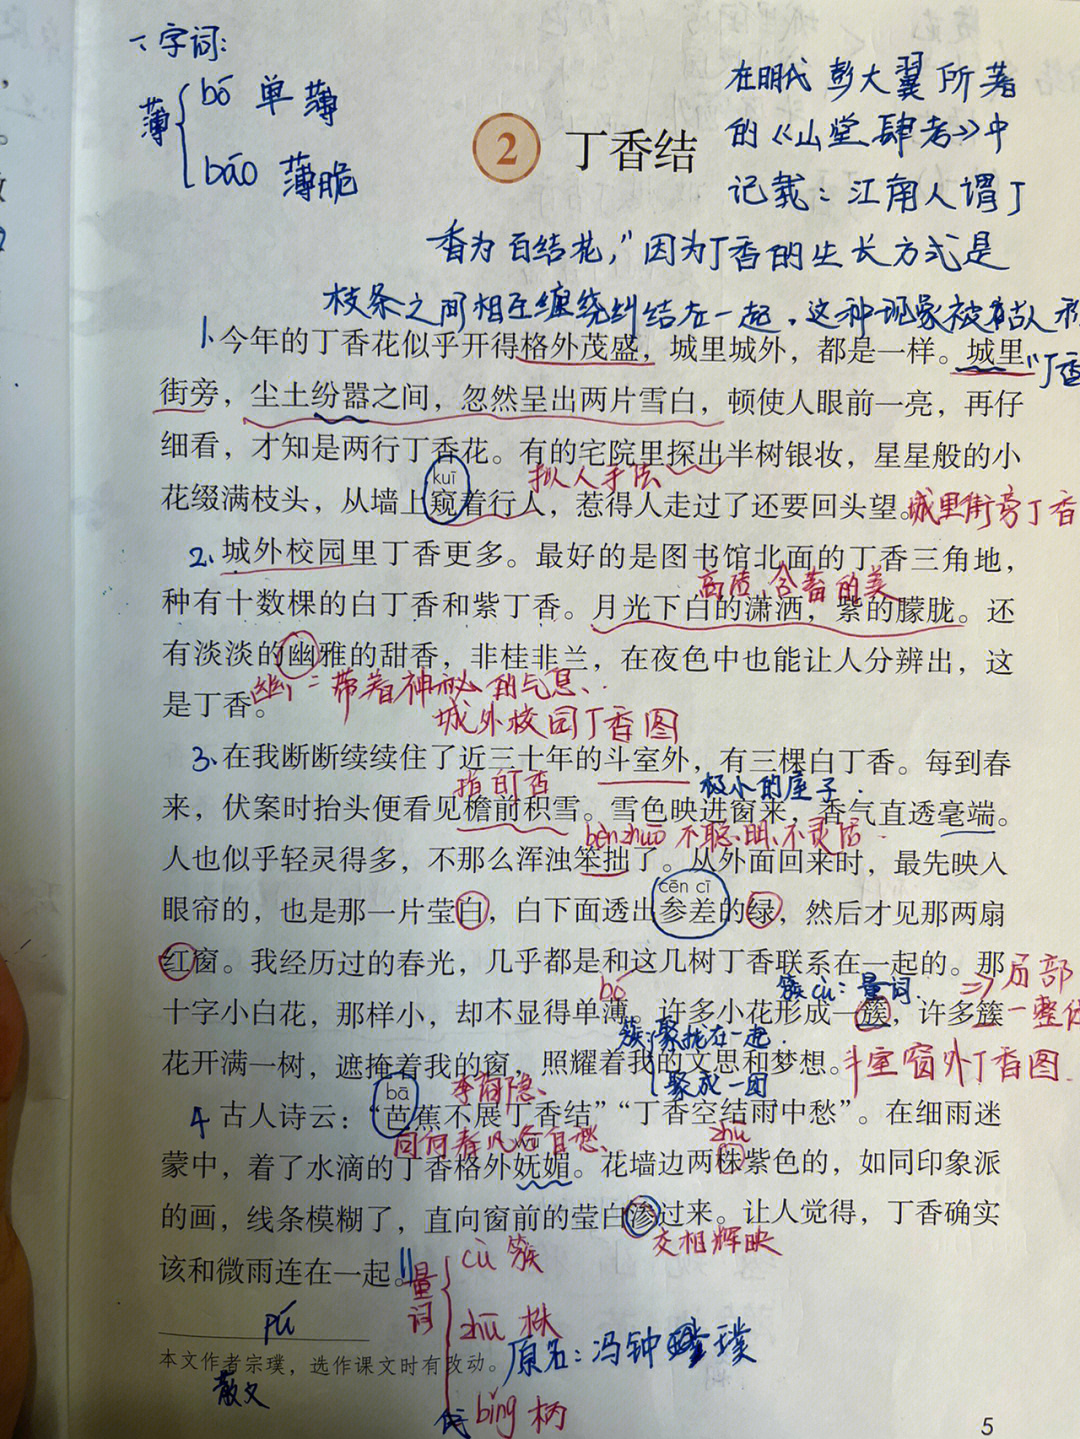 一、字词：
薄
bó 单薄
báo 薄脆
2 丁香结
在明代彭大翼所著
的《山堂肆考》中
记载：江南人谓丁
香为百结花，"因为丁香的生长方式是
枝条之间相互缠绕纠结在一起，这种现象被古人称
"丁香
1、今年的丁香花似乎开得格外茂盛，城里城外，都是一样。城里
街旁，尘土纷嚣之间，忽然呈出两片雪白，顿使人眼前一亮，再仔
细看，才知是两行丁香花。有的宅院里探出半树银妆，星星般的小
拟人手法
kuī
花缀满枝头，从墙上窥着行人，惹得人走过了还要回头望。
城里街旁丁香
2、城外校园里丁香更多。最好的是图书馆北面的丁香三角地，
高洁、含蓄的美
种有十数棵的白丁香和紫丁香。月光下白的潇洒，紫的朦胧。还
有淡淡的幽雅的甜香，非桂非兰，在夜色中也能让人分辨出，这
幽：带着神秘的气息、
是丁香。
城外校园丁香图
3、在我断断续续住了近三十年的斗室外，有三棵白丁香。每到春
指白丁香
极小的屋子.
来，伏案时抬头便看见檐前积雪。雪色映进窗来，香气直透毫端。
bèn zhuō 不聪明、不灵活.
人也似乎轻灵得多，不那么浑浊笨拙了。从外面回来时，最先映入
cēn cī
眼帘的，也是那一片莹白，白下面透出参差的绿，然后才见那两扇
红窗。我经历过的春光，几乎都是和这几树丁香联系在一起的。那
bó
簇cù：量词.
=> 局部
十字小白花，那样小，却不显得单薄。许多小花形成一簇，许多簇
一整体
簇：聚拢在一起.
花开满一树，遮掩着我的窗，照耀着我的文思和梦想。
斗室窗外丁香图.
聚成一团
李商隐、
bā
4 古人诗云：“芭蕉不展丁香结”“丁香空结雨中愁”。在细雨迷
同向春风各自愁、
wǔ
zhū
蒙中，着了水滴的丁香格外妩媚。花墙边两株紫色的，如同印象派
的画，线条模糊了，直向窗前的莹白渗过来。让人觉得，丁香确实
交相辉映
该和微雨连在一起。
量词
cù 簇
zhū 株
bǐng 柄
pú
本文作者宗璞，选作课文时有改动。
原名：冯钟璞
散文
5